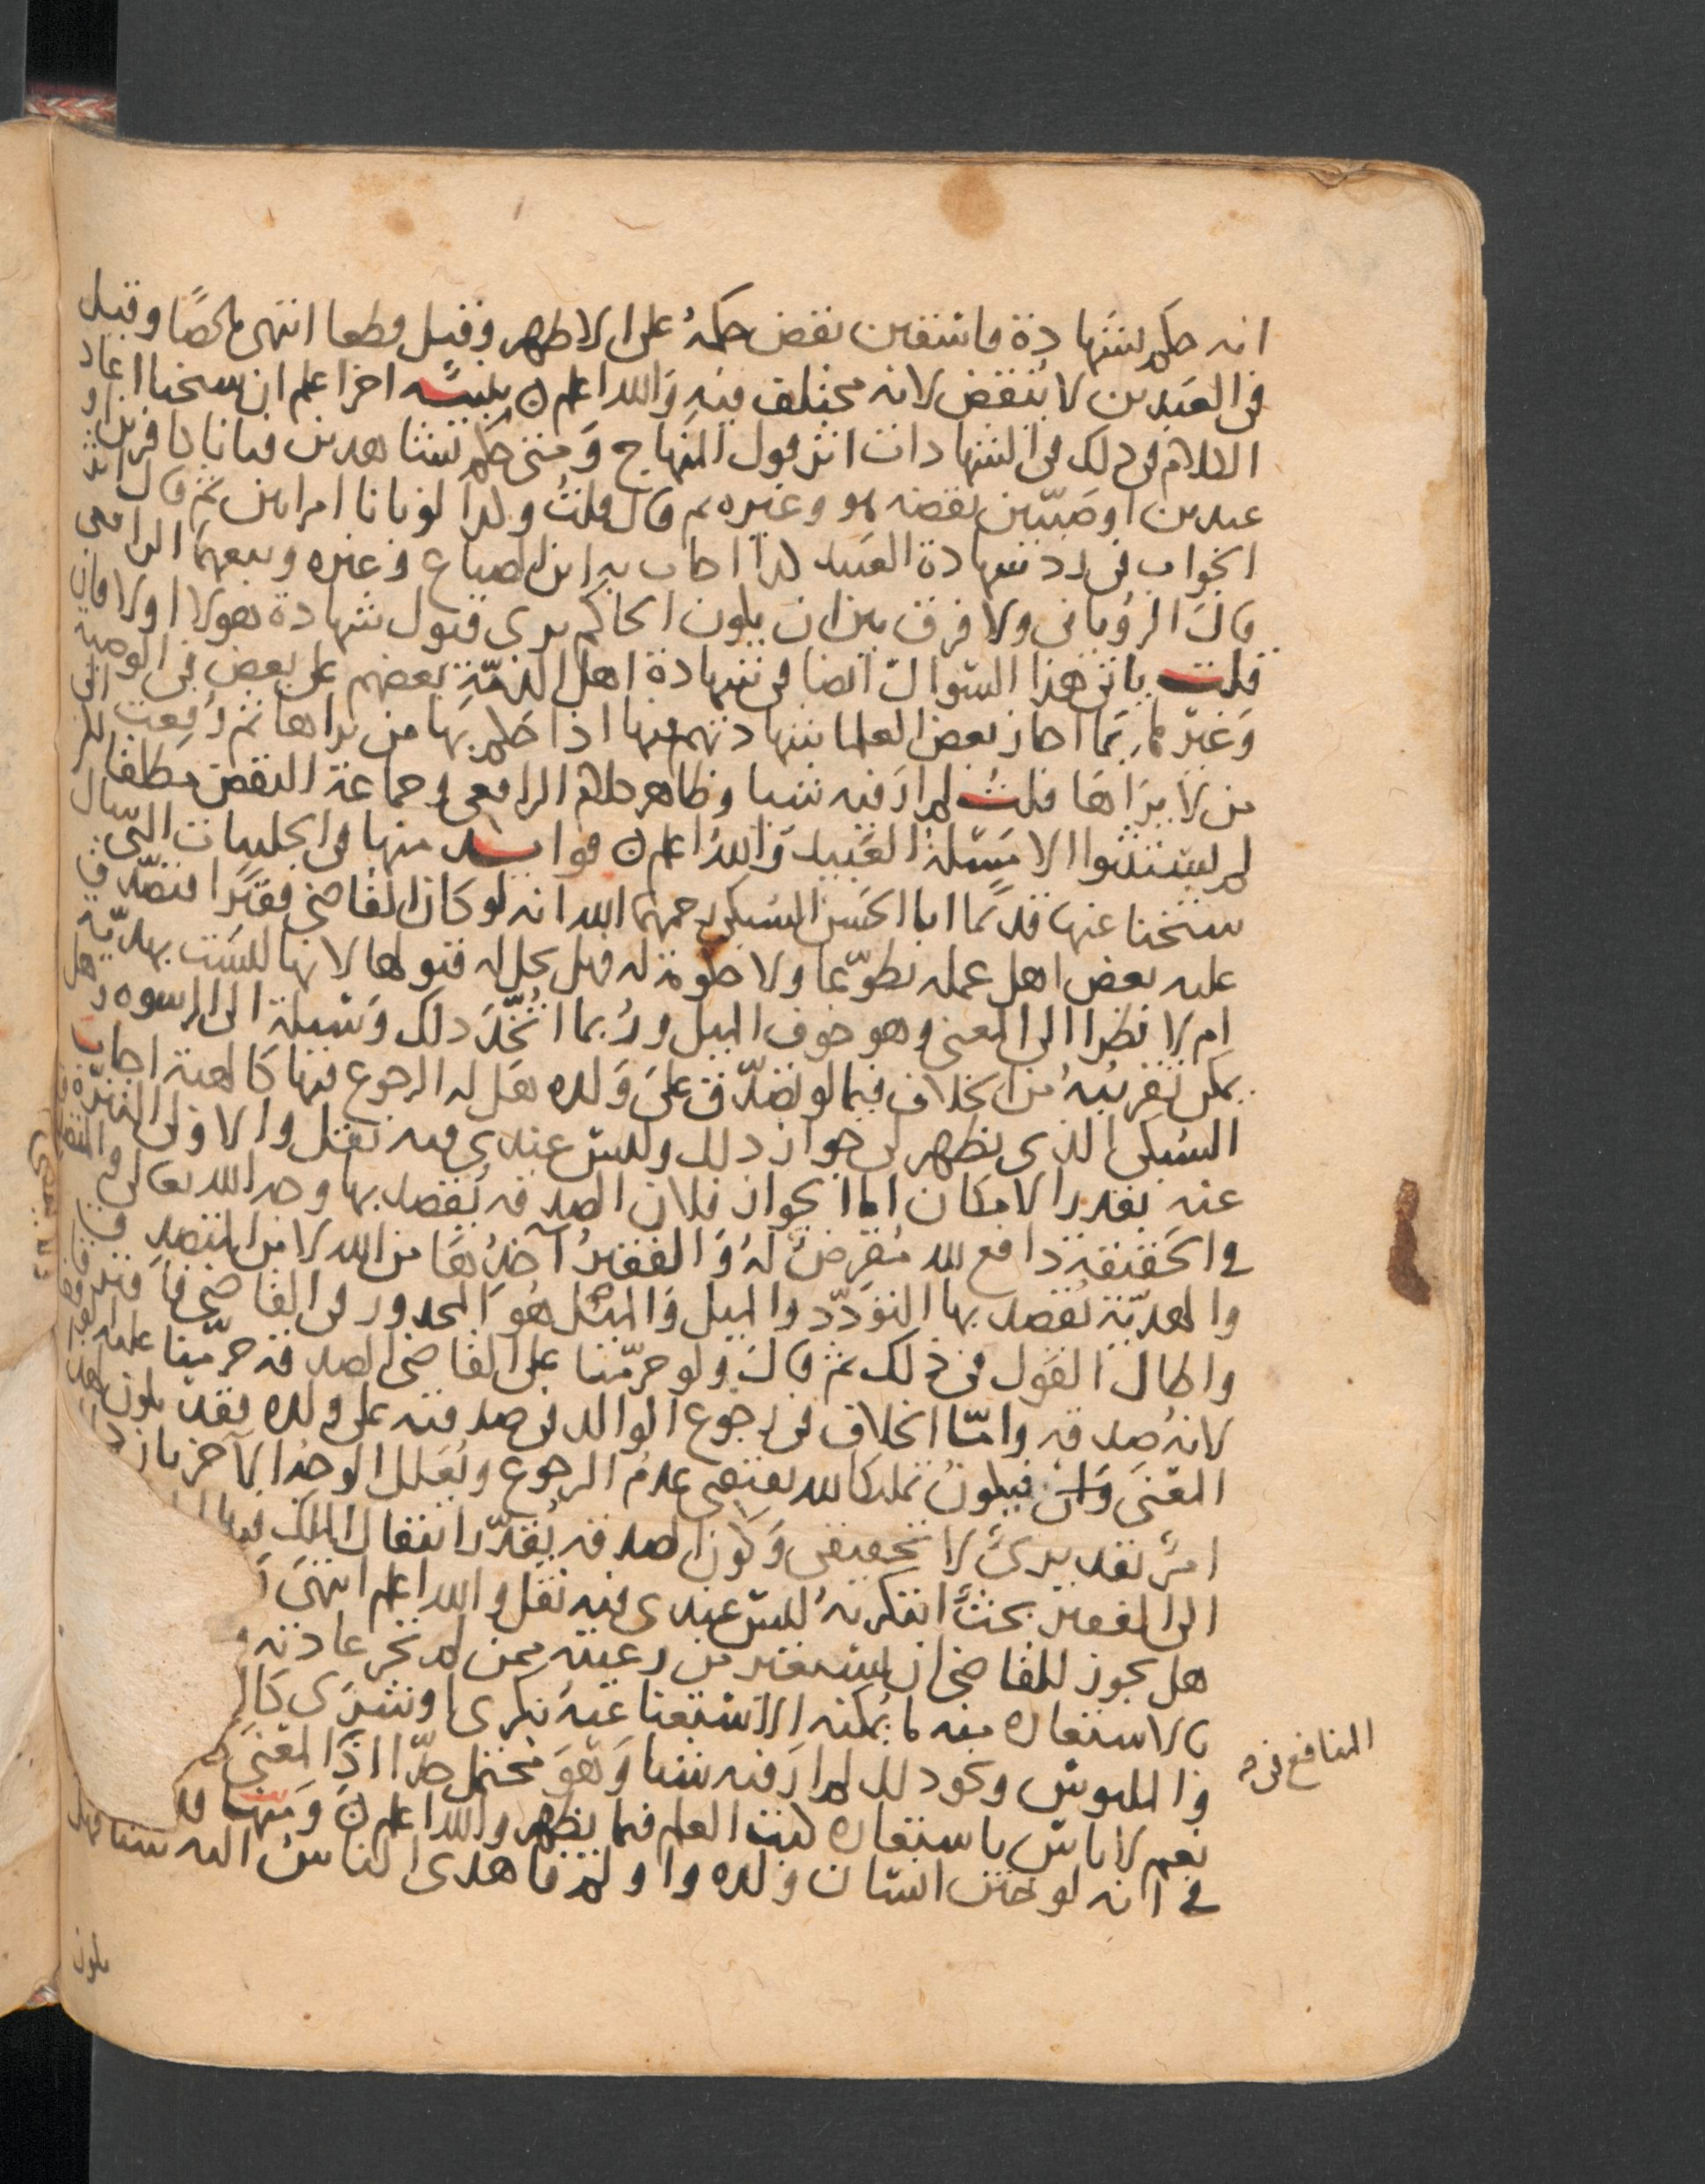 انه حكم بشهادة فاسقين نقض حكمه على الاظهر وقيل قطعا انتهى ملخصًا وقيل
في العبدين لا ينقض لانه مختلف فيه والله اعلم تنبيه اخر اعلم ان شيخنا اعاد
الكلام في ذلك في الشهادات اثر قول المنهاج ومتى حكم بشاهدين فبانا كافرين او
عبدين او صبيين نقضه هو وغيره ثم قال قلت وكذا لو بانا امراتين ثم قال
الجواب في رد شهادة العبيد كذا اجاب به ابن الصباغ وغيره وتبعهما الرافعي
قال الروياني ولا فرق بين ان يكون الحاكم يرى قبول شهادة هولا اولا فان
قلت ياتي هذا السؤال ايضا في شهادة اهل الذمة بعضهم على بعض في الوصية
وغيرها مما اجاز بعض العلما شهادتهم فيها اذا حكم بها من يراها ثم رفعت الى
من لا يراها قلت لم ار فيه شيا وظاهر كلام الرافعي وجماعة النقض مطلقا
لم يستثنوا الا مسئلة العبيد والله اعلم فوايد منها في الحلبيات التي سال
شيخنا عنها قديمًا ابا الحسن السبكي رحمهما الله انه لو كان القاضي فقيرًا فتصدق
عليه بعض اهل عمله تطوعا ولا حكومة له فهل يحل له قبولها لانها ليست بهدية
ام لا نظرا الى المعنى وهو خوف الميل وربما اتخذ ذلك وسيلة الى الرشوه وهل
يمكن تقريبه من الخلاف فيما لو تصدق على ولده هل له الرجوع فيها كالهبة اجاب
السبكي الذي يظهر لي جواز ذلك وليس عندي فيه نقل والاولى التنزه
عنه بقدر الامكان اما الجواز فلان الصدقه يقصد بها وجه الله تعالى
في الحقيقة دافع لله مقرض له والفقير آخذها من الله لا من المتصدق
والهدية يقصد بها التودد والميل والميل هو المحذور في القاضي
واطال القول في ذلك ثم قال ولو حرمنا على القاضي الصدقه حرمنا عليه
لانه صدقه واما الخلاف في رجوع الوالد في صدقته على ولده فقد يكون لهذا
المعنى وان فيكون تمليكا لله يقتضي عدم الرجوع ويعلل الوجه الآخر بان
امر تقديري لا تحقيقي وكون الصدقه يقدر انتقال الملك فيها
الى الفقير بحثًا ابتكرته ليس عندي فيه نقل والله اعلم انتهى
هل يجوز للقاضي ان يستعير من رعيته ممن لم تجر عادته
بالاستعاره منه ما يمكنه الاستغنا عنه بكرى او بشرى
والملبوس ونحو ذلك لم ار فيه شيا وهو محتمل جدا اذا المعنى
نعم لا باس باستعاره كتب العلم فيما يظهر والله اعلم ومنها
في انه لو ختن انسان ولده واولم فاهدى الناس اليه شيا فهل
المنافع في
يكون